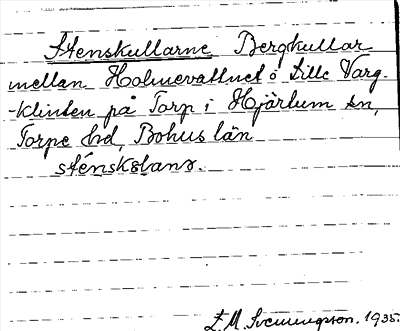 Stenskullarne Bergkullar
mellan Holmevattnet o Lille Varg-
-klinten på Torp i Hjärtum sn,
Torpe hd, Bohus län
sténskƨlanɘ.
E. M. Svenungsson. 1935.